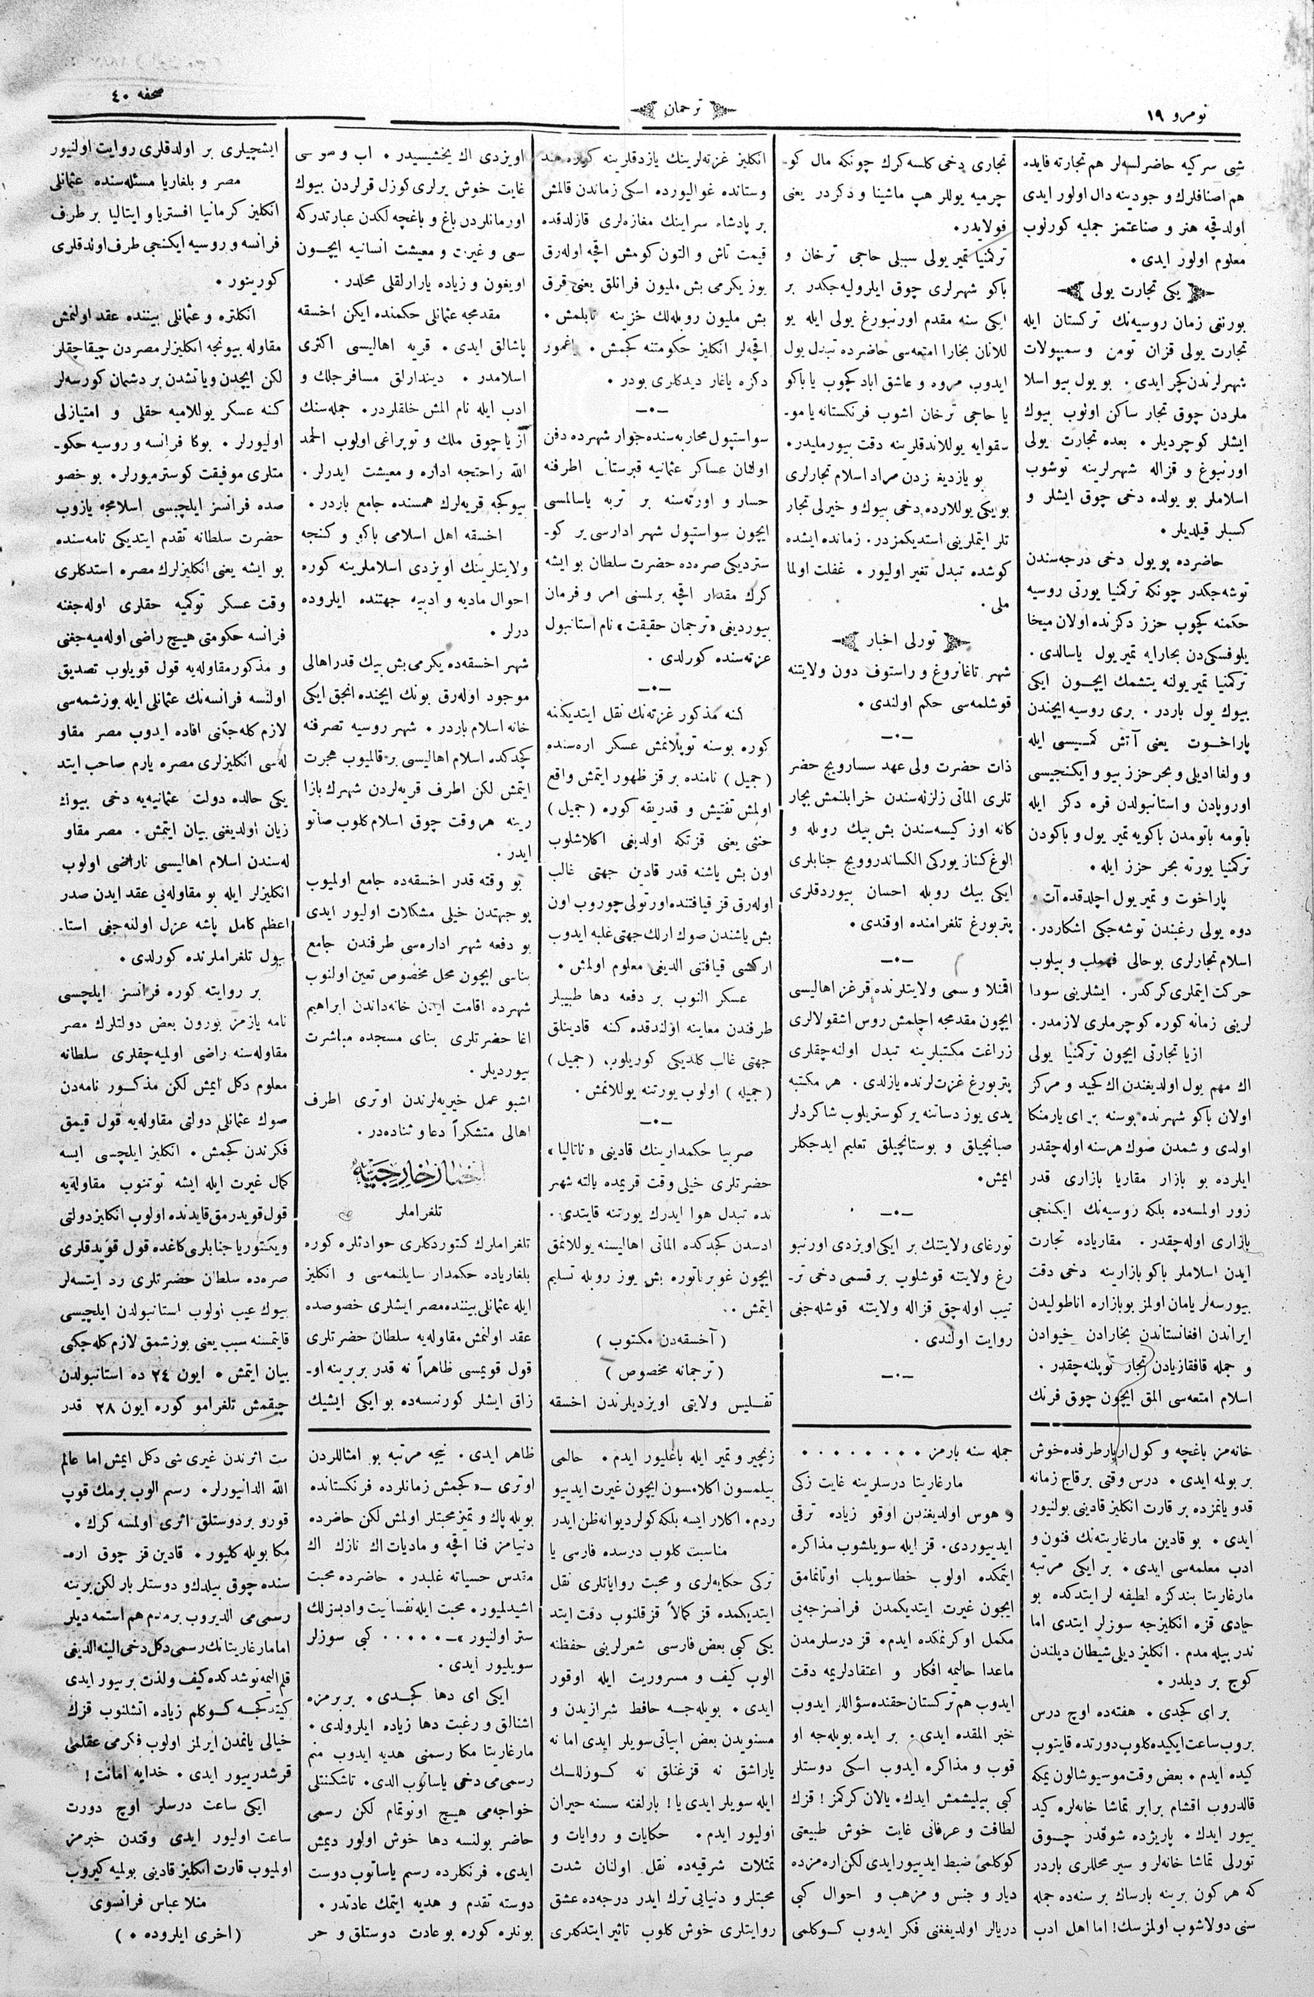 نومرو ١٩
ترجمان
صحفه ٤٠
شی سرکیه حاضرلسه‌لر هم تجارته فایده
هم اصنافلرك و جودینه دال اولور ایدی
اولدقچه هنر و صناعتمز جمله‌یه کورنوب
معلوم اولور ایدی .
یکی تجارت یولی
بورنغی زمان روسیه‌نك ترکستان ایله
تجارت یولی قزان تومن و سمیپولات
شهرلرندن کچر ایدی . بو یول بیو اسلا
ملردن چوق تجار ساکن اولوب بیوك
ایشلر کوچردیلر . بعده تجارت یولی
اورنبوغ و قزاله شهرلرینه توشوب
اسلاملر بو یولده دخی چوق ایشلر و
کسبلر قیلدیلر .
حاضرده پو یول دخی درجه‌سندن
توشه‌جکدر چونکه ترکمنیا یورتی روسیه
حکمنه کچوب حزز دکزنده اولان میخا
یلوفسکی‌دن بخارایه تمیر یول یاسالدی .
ترکمنیا تمیر یولنه یتشمك ایچون ایکی
بیوك یول باردر . بری روسیه ایچندن
پاراخوت یعنی آتش کمیسی ایله
و ولغا ادیلی و بحر حزز بیو و ایکنجیسی
اوروپادن و استانبولدن قره دکز ایله
باتومه باتومدن باکویه تمیر یول و باکودن
ترکمنیا یورته بحر حزز ایله .
پاراخوت و تمیر یول اچلدقده آت
دوه یولی رغبتدن توشه‌جکی اشکاردر .
اسلام تجارلری بو حالی فهملب و بیلوب
حرکت ایتملری کرکدر . ایشلرینی سودا
لرینی زمانه کوره کوچرملری لازمدر .
ازیا تجارتی ایچون ترکمنیا یولی
اك مهم یول اولدیغندن اك کجید و مرکز
اولان باکو شهرنده بوسنه بر ای یارمنکا
اولدی و شمدن صوك هر سنه اوله‌چقدر
ایلرده بو بازار مقاریا بازاری قدر
زور اولمسه‌ده بلکه روسیه‌نك ایکنجی
بازاری اوله‌چقدر . مقاریاده تجارت
ایدن اسلاملر باکو بازارینه دخی دقت
بیورسه‌لر یامان اولمز بو بازاره اناطولیدن
ایراندن افغانستاندن بخارادن خیوادن
و جمله قافقازیادن تجار توپلنه‌چقدر .
اسلام امتعه‌سی المق ایچون چوق فرنك
تجاری دخی کلسه کرك چونکه مال کو-
چرمیه یوللر هپ ماشینا و دکردر یعنی
قولایدر .
ترکمنیا تمیر یولی سببلی حاجی ترخان و
باکو شهرلری چوق ایلرولیه‌جکدر بر
ایکی سنه مقدم اورنبورغ یولی ایله یو
للانان بخارا امتعه‌سی حاضرده تبدل یول
ایدوب مروه و عاشق اباد کچوب یا باکو
یا حاجی ترخان اشوب فرنکستانه یا مو-
سقوایه یوللاندقلرینه دقت بیورملیدر .
بو یازدیغمزدن مراد اسلام تجارلری
بو ایکی یوللارده دخی بیوك و خیرلی تجار
تلر ایتملرینی استدیکمزدر . زمانده ایشده
کوشده تبدل تغیر اولیور . غفلت اولما
ملی .
تورلی اخبار
شهر تاغانروغ و راستوف دون ولایتنه
قوشلمه‌سی حکم اولندی .
ذات حضرت ولی عهد سسارویج حضر
تلری الماتی زلزله‌سندن خرابلنمش بجار
کانه اوز کیسه‌سندن بش بیك روبله و
الوغ کناز یورکی الکساندروویج جنابلری
ایکی بیك روبله احسان بیوردقلری
پتربورغ تلغرامنده اوقندی .
اقمنلا و سمی ولایتلرنده قرغز اهالیسی
ایچون مقدمجه اچلمش روس اشقولالری
زراعت مکتبلرینه تبدل اولنه‌چقلری
پتربورغ غزت‌لرنده یازلدی . هر مکتبه
یدی یوز دساتنه یر کوستریلوب شاکردلر
صبانچیلق و بوستانچیلق تعلیم ایدجکلر
ایمش .
تورغای ولایتنك بر ایکی اویزدی اورنبو
رغ ولایتنه قوشلوب بر قسمی دخی تر-
تیب اوله‌چق قزاله ولایتنه قوشله‌جغی
روایت اولندی .
انکلیز غزته‌لرینك یازدقلرینه کوره هند
وستانده غوالیورده اسکی زماندن قالمش
بر پادشاه سراینك مغازه‌لری قازلدقده
قیمت تاش و التون کومش اقچه اوله‌رق
یوز یکرمی بش ملیون فرانلق یعنی قرق
بش ملیون روبله‌لك خزینه تابلمش .
اقچه‌لر انکلیز حکومتنه کچمش . یاغمور
دکزه یاغار دیدکلری بودر .
سواستپول محاربه‌سنده جوار شهرده دفن
اولنان عساکر عثمانیه قبرستانی اطرفنه
حسار و اورته‌سنه بر تربه یاسالمسی
ایچون سواستپول شهر ادارسی یر کو-
ستردیکی صره‌ده حضرت سلطان بو ایشه
کرك مقدار اقچه برلمسنی امر و فرمان
بیوردیغی «ترجمان حقیقت» نام استانبول
غزته‌سنده کورلدی .
کنه مذکور غزته‌نك نقل ایتدیکنه
کوره بوسنه توپلانمش عسکر اره‌سنده
( جمیل ) نامنده بر قز ظهور ایتمش واقع
اولمش تفتیش و قدریقه کوره ( جمیل )
خنثی یعنی قزتکه اولدیغی اکلاشلوب
اون بش یاشنه قدر قادین جهتی غالب
اوله‌رق قز قیافتنده اورتولی چوروب اون
بش یاشندن صوك ارلك جهتی غلبه ایدوب
ار کشی قیافتنی الدیغی معلوم اولمش .
عسکر النوب بر دفعه دها طبیبلر
طرفندن معاینه اولندقده کنه قادینلق
جهتی غالب کلدیکی کوریلوب ( جمیل )
( جمیله ) اولوب یورتنه یوللانمش .
صربیا حکمدارینك قادینی «ناتالیا»
حضرتلری خیلی وقت قریمده یالته شهر
نده تبدل هوا ایدرك یورتنه قایتدی .
ادسدن کجدکده الماتی اهالیسنه یوللانمق
ایچون غوبرناتوره بش یوز روبله تسلیم
ایتمش .
( آخسقه‌دن مکتوب )
( ترجمانه مخصوص )
تفلیس ولایتی اویزدیلرندن اخسقه
اویزدی اك یخشیسیدر . اب و هوسی
غایت خوش یرلری کوزل قرلردن بیوك
اورمانلردن باغ و باغچه لکدن عبارتدر که
سعی و غیرت و معیشت انسانیه ایچون
اویغون و زیاده یارارلقلی محلدر .
مقدمجه عثمانلی حکمنده ایکن اخسقه
پاشالق ایدی . قریه اهالیسی اکثری
اسلامدر . دیندارلق مسافرجلك و
ادب ایله نام المش خلقلردر . جمله‌سنك
از یا چوق ملك و توپراغی اولوب الحمد
الله راحتجه اداره و معیشت ایدرلر .
بیوکجه قریه‌لرك همسنده جامع باردر .
اخسقه اهل اسلامی باکو و کنجه
ولایتلرینك اویزدی اسلاملرینه کوره
احوال مادیه و ادبیه جهتنده ایلروده
درلر .
شهر اخسقه‌ده یکرمی بش بیك قدر اهالی
موجود اوله‌رق بونك ایچنده انجق ایکی
خانه اسلام باردر . شهر روسیه تصرفنه
کچدکده اسلام اهالیسی بر قالمیوب هجرت
ایتمش لکن اطرف قریه‌لردن شهرك بازا
رینه هر وقت چوق اسلام کلوب صاتو
ایدر .
بو وقته قدر اخسقه‌ده جامع اولمیوب
بو جهتدن خیلی مشکلات اولیور ایدی
بو دفعه شهر اداره‌سی طرفندن جامع
بناسی ایچون محل مخصوص تعین اولنوب
شهرده اقامت ایدن خانه‌داندن ابراهیم
اغا حضرتلری بنای مسجده مباشرت
بیوردیلر .
اشبو عمل خیریه‌لرندن اوتری اطرف
اهالی متشکراً دعا و ثناده‌در .
اخبار خارجیه
تلغراملر
تلغراملرك کتوردکلری حوادثلره کوره
بلغاریاده حکمدار سایلنمه‌سی و انکلیز
ایله عثمانلی بیننده مصر ایشلری خصوصده
عقد اولنمش مقاوله‌یه سلطان حضرتلری
قول قویمسی ظاهراً نه قدر بربرینه او-
زاق ایشلر کورنسه‌ده بو ایکی ایشیك
ایشچیلری بر اولدقلری روایت اولنیور
مصر و بلغاریا مسئله‌سنده عثمانلی
انکلیز کرمانیا افستریا و ایتالیا بر طرف
فرانسه و روسیه ایکنجی طرف اوندقلری
کورینور .
انکلتره و عثمانلی بیننده عقد اولنمش
مقاوله بیونجه انکلیزلر مصردن چیقاجقلر
لکن ایچدن و یا تشدن بر دشمان کورسه‌لر
کنه عسکر یوللامیه حقلی و امتیازلی
اولیورلر . بوکا فرانسه و روسیه حکو-
متلری موفیقت کوسترمیورلر . بو خصو
صده فرانسز ایلچیسی اسلامجه یازوب
حضرت سلطانه تقدم ایتدیکی نامه‌سنده
بو ایشه یعنی انکلیزلرك مصره استدکلری
وقت عسکر توکمیه حقلری اوله‌جغنه
فرانسه حکومتی هیچ راضی اوله‌میه‌جغنی
و مذکور مقاوله‌یه قول قویلوب تصدیق
اولنسه فرانسه‌نك عثمانلی ایله بوزشمه‌سی
لازم کله‌جتی افاده ایدوب مصر مقاو
له‌سی انکلیزلری مصره یارم صاحب ایتد
یکی حالده دولت عثمانیه‌یه دخی بیوك
زیان اولدیغنی بیان ایتمش . مصر مقاو
له‌سندن اسلام اهالیسی ناراضی اولوب
انکلیزلر ایله بو مقاوله‌یی عقد ایدن صدر
اعظم کامل پاشه عزل اولنه‌جغی استا-
نبول تلغراملرنده کورلدی .
بر روایته کوره فرانسز ایلچیسی
نامه یازمز بورون بعض دولتلرك مصر
مقاوله‌سنه راضی اولمیه‌چقلری سلطانه
معلوم دکل ایمش لکن مذکور نامه‌دن
صوك عثمانلی دولتی مقاوله‌یه قول قیمق
فکرندن کجمش . انکلیز ایلچیسی ایسه
کمال غیرت ایله ایشه توتنوب مقاوله‌یه
قول قویدرمق قایدنده اولوب انکلیز دولتی
ویکتوریا جنابلری کاغده قول قویدقلری
صره‌ده سلطان حضرتلری رد ایتسه‌لر
بیوك عیب اولوب استانبولدن ایلچیسی
قایتمسنه سبب یعنی بوزشمق لازم کله‌جکی
بیان ایتمش . ایون ٢٤ ده استانبولدن
چیقمش تلغرامو کوره ایون ٢٨ قدر
خانه‌مز باغچه و کول ار یار طرفده خوش
بر بولمه ایدی . درس وقتی بر قاچ زمانه
قدو یانمزده بر قارت انکلیز قادینی بولنیور
ایدی . بو قادین مارغاریته‌نك فنون و
ادب معلمه‌سی ایدی . بر ایکی مرتبه
مارغاریتا بندکزه لطیفه لر ایتدکده بو
جادی قزه انکلیزجه سوزلر ایتدی اما
ندر بیله مدم . انکلیز دیلی شیطان دیلندن
کوج بر دیلدر .
بر ای کجدی . هفته‌ده اوچ درس
بروب ساعت ایکیده کلوب دورتده قایتوب
کیده ایدم . بعض وقت موسیو شالون یمکه
قالدروب اقشام برابر تماشا خانه‌لره کید
ییور ایدك . پاریژده شوقدر چوق
تورلی تماشا خانه‌لر و سیر محللری باردر
که هر کون برینه بارساك بر سنه‌ده جمله
سنی دولاشوب اولمزسك ! اما اهل ادب
جمله سنه بارمز . . . . . . . .
مارغاریتا درسلرینه غایت زکی
و هوس اولدیغندن اوقو زیاده ترقی
ایدییوردی . قز ایله سویلشوب مذاکره
ایتمکده اولوب خطا سویلب اوتانمامق
ایچون غیرت ایتدیکمدن فرانسزجه‌یی
مکمل اوکرنمکده ایدم . قز درسلرمدن
ماعدا حالیمه افکار و اعتقادلریمه دقت
ایدوب هم ترکستان حقنده سؤاللر ایدوب
خبر المقده ایدی . بر ایده بویله‌جه او
قوب و مذاکره ایدوب اسکی دوستلر
کبی بیلیشمش ایدك . یالان کرکمز ! قزك
لطافت و عرفانی غایت خوش طبیعتی
کوکلمی ضبط ایدییور ایدی لکن اره‌مزده
دیار و جنس و مزهب و احوال کبی
دریالر اولدیغغنی فکر ایدوب کوکلمی
زنجیر و تمیر ایله باغلیور ایدم . حالمی
بیلمسون اکلامسون ایچون غیرت ایدییو
ردم . اکلار ایسه بلکه کولر دیوانه ظن ایدر
مناسبت کلوب درسده فارسی یا
ترکی حکایه‌لری و محبت روایاتلری نقل
ایتدیکمده قز کمالاً قز قلنوب دقت ایتد
یکی کبی بعض فارسی شعرلرینی حفظنه
الوب کیف و مسروریت ایله اوقور
ایدی . بویله‌جه حافظ شرازیدن و
مسنویدن بعض ابیاتی سویلر ایدی اما نه
یاراشق نه قزغنلق نه کوزللك
ایله سویلر ایدی یا ! بارلغنه سسنه حیران
اولیور ایدم . حکایات و روایات و
تمثلات شرقیه‌ده نقل اولنان شدت
محبتلر و دنیایی ترك ایدر درجه‌ده عشق
روایتلری خوش کلوب تاثیر ایتدکلری
ظاهر ایدی . نیجه مرتبه بو امثاللردن
اوتری —«کجمش زمانلرده فرنکستانده
بویله پاك و تمیز محبتلر اولمش لکن حاضرده
دنیامز فنا اقچه و مادیات اك نازك اك
مقدس حسیاته غلبدر . حاضرده محبت
اشیدلمیور . محبت ایله نفسانیت و ادبسزلك
ستر اولنیور »— . . . . . کبی سوزلر
سویلیور ایدی .
ایکی ای دها کجدی . بربرمزه
اشنالق و رغبت دها زیاده ایلرولدی .
مارغاریتا مکا رسمنی هدیه ایدوب منم
رسمی‌می دخی یاساتوب الدی . تاشکنتلی
خواجه‌می هیچ اونوتمام لکن رسمی
حاضر بولنسه دها خوش اولور دیمش
ایدی . فرنکلرده رسم یاساتوب دوست
دوسته تقدم و هدیه ایتمك عادتدر .
بونلره کوره بو عادت دوستلق و حر
مت اثرندن غیری شی دکل ایمش اما عالم
الله الدانیورلر . رسم الوب برمك قوپ
قورو بر دوستلق اثری اولمسه کرك .
مکا بویله کلیور . قادین قز چوق اره-
سنده چوق بیلدك و دوستلر بار لکن برینه
رسمی می الدیروب برمدم هم استمه دیلر
اما مارغاریتانك رسمی دکل دخی الینه الدیغی
قلم الیمه توشدکده کیف ولذت بریور ایدی
کیتدکجه کوکلم زیاده اتشلنوب قزك
خیالی یانمدن ایرلمز اولوب فکرمی عقلمی
قرشدریور ایدی . خدایه امانت !
ایکی ساعت درسلر اوچ دورت
ساعت اولیور ایدی وقتدن خبرمز
اولمیوب قارت انکلیز قادینی بولمیه کیروب
منلا عباس فرانسوی
( اخری ایلروده . )